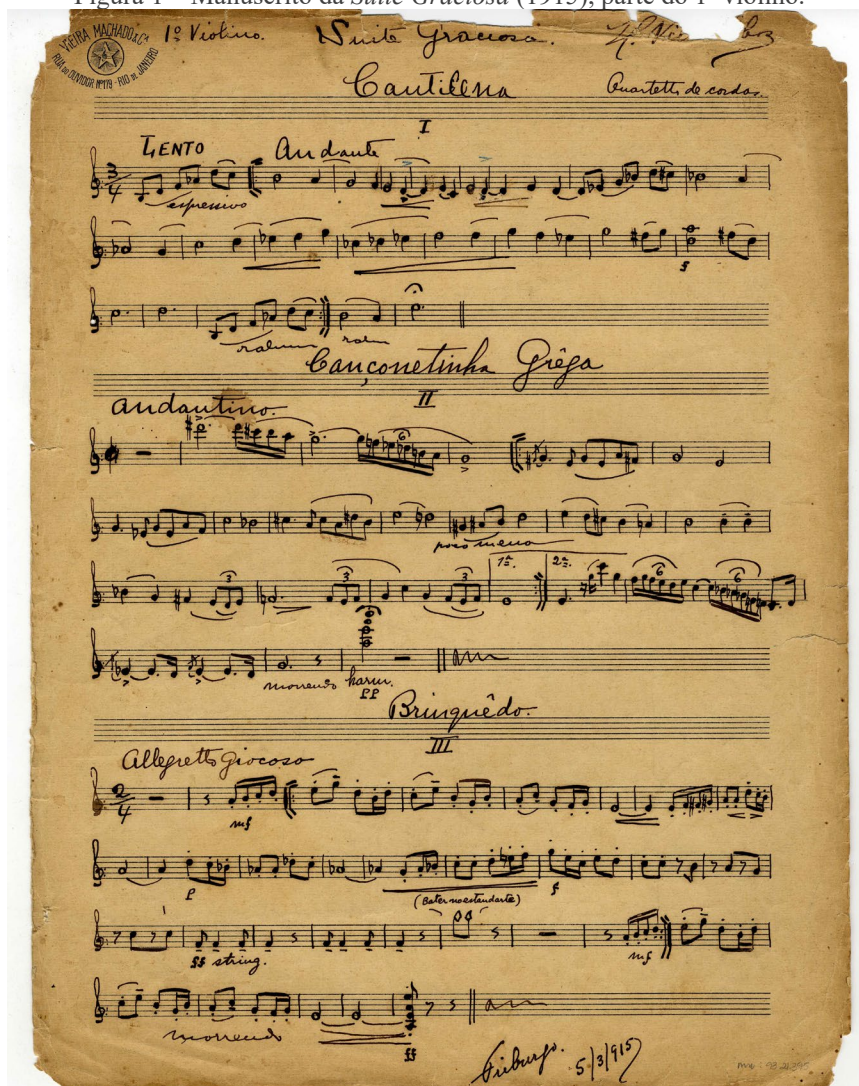 Figura 1 – Manuscrito da Suíte Graciosa (1915), parte do 1º violino.
VIEIRA MACHADO & Cª
RUA DO OUVIDOR Nº179 - RIO DE JANEIRO
1º Violino. Suite Graciosa.
Cantilena Quartetto de cordas.
I
LENTO Andante
3/4
espressivo
f
rallum rallm
Cançonetinha Grêga
II
Andantino.
6
poco meno
3 3 3 1ª. 2ª. 6 6
morrendo harm.
ff
Brinquêdo.
III
Allegretto giocoso
2/4
mf
p (Bater no estandarte) f
ff string. mf
morrendo
ff
Friburgo. 5/3/915